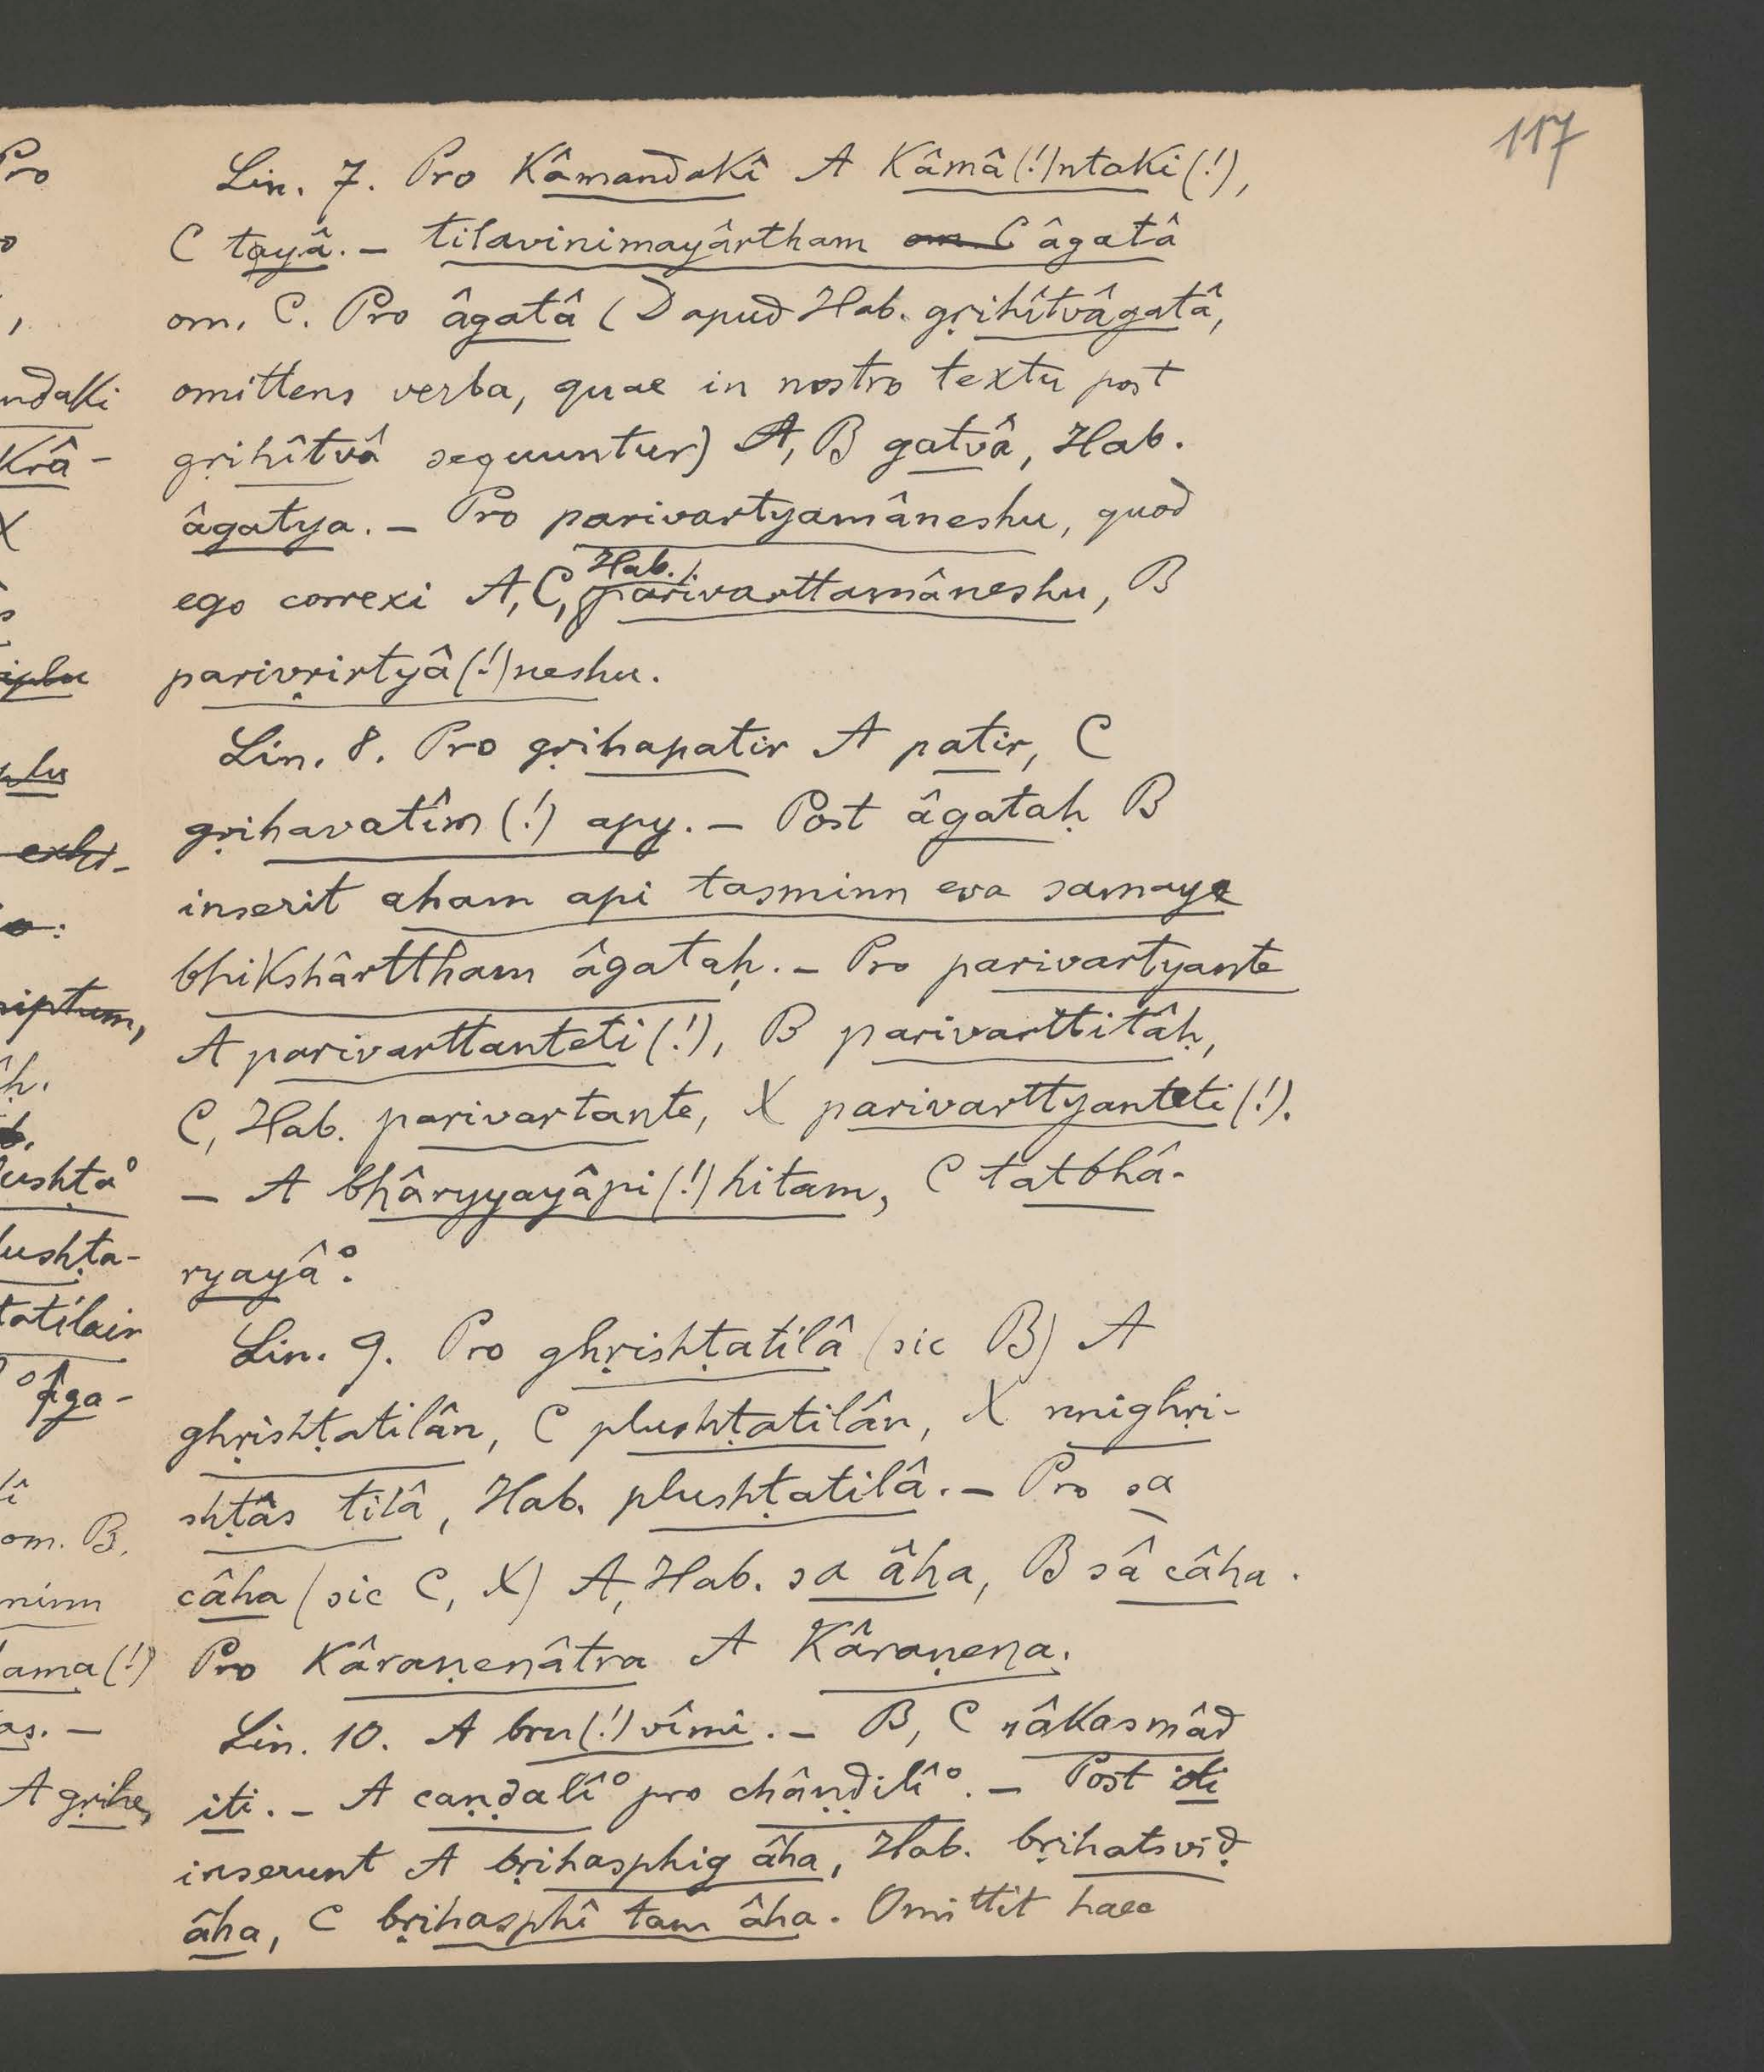 117
Lin. 7. Pro Kâmandakî A Kâmâ(!)ntaki(!),
C tayâ. – tilavinimayârtham om. C âgatâ
om. C. Pro âgatâ (D apud Hab. gṛihîtvâgatâ,
omittens verba, quae in nostro textu post
gṛihîtvâ sequuntur) A, B gatvâ, Hab.
âgatya. – Pro parivartyamâneshu, quod
ego correxi A, C, Hab. parivarttamâneshu, B
parivṛirtyâ(!)neshu.
Lin. 8. Pro gṛihapatir A patir, C
gṛihavatîm(!) apy. – Post âgataḥ B
inserit aham api tasminn eva samaye
bhikshârttham âgataḥ. – Pro parivartyante
A parivarttanteti(!), B parivarttitâḥ,
C, Hab. parivartante, X parivarttyanteti(!).
– A bhâryyayâpi(!)hitam, C tatbhâ-
ryayâ°.
Lin. 9. Pro ghṛishṭatilâ (sic B) A
ghṛishṭatilân, C plushṭatilân, X nnighṛi-
shṭâs tilâ, Hab. plushṭatilâ. – Pro sa
câha (sic C, X) A, Hab. sa âha, B sâ câha.
Pro Kâraṇenâtra A Kâraṇena.
Lin. 10. A bru(!)vîmi. – B, C nâkasmâd
iti. – A caṇḍalî° pro châṇḍilî°. – Post iti
inserunt A bṛihasphig âha, Hab. bṛihatsviḍ
âha, C bṛihasphî tam âha. Omittit haec
Pro
ndaki
Krâ-
X
iplu
plu
exhi-
riptum,
âḥ.
lushṭa°
lushṭa-
tatilair
°âga-
om. B.
minn
lama(!)
as. –
A gṛihe,